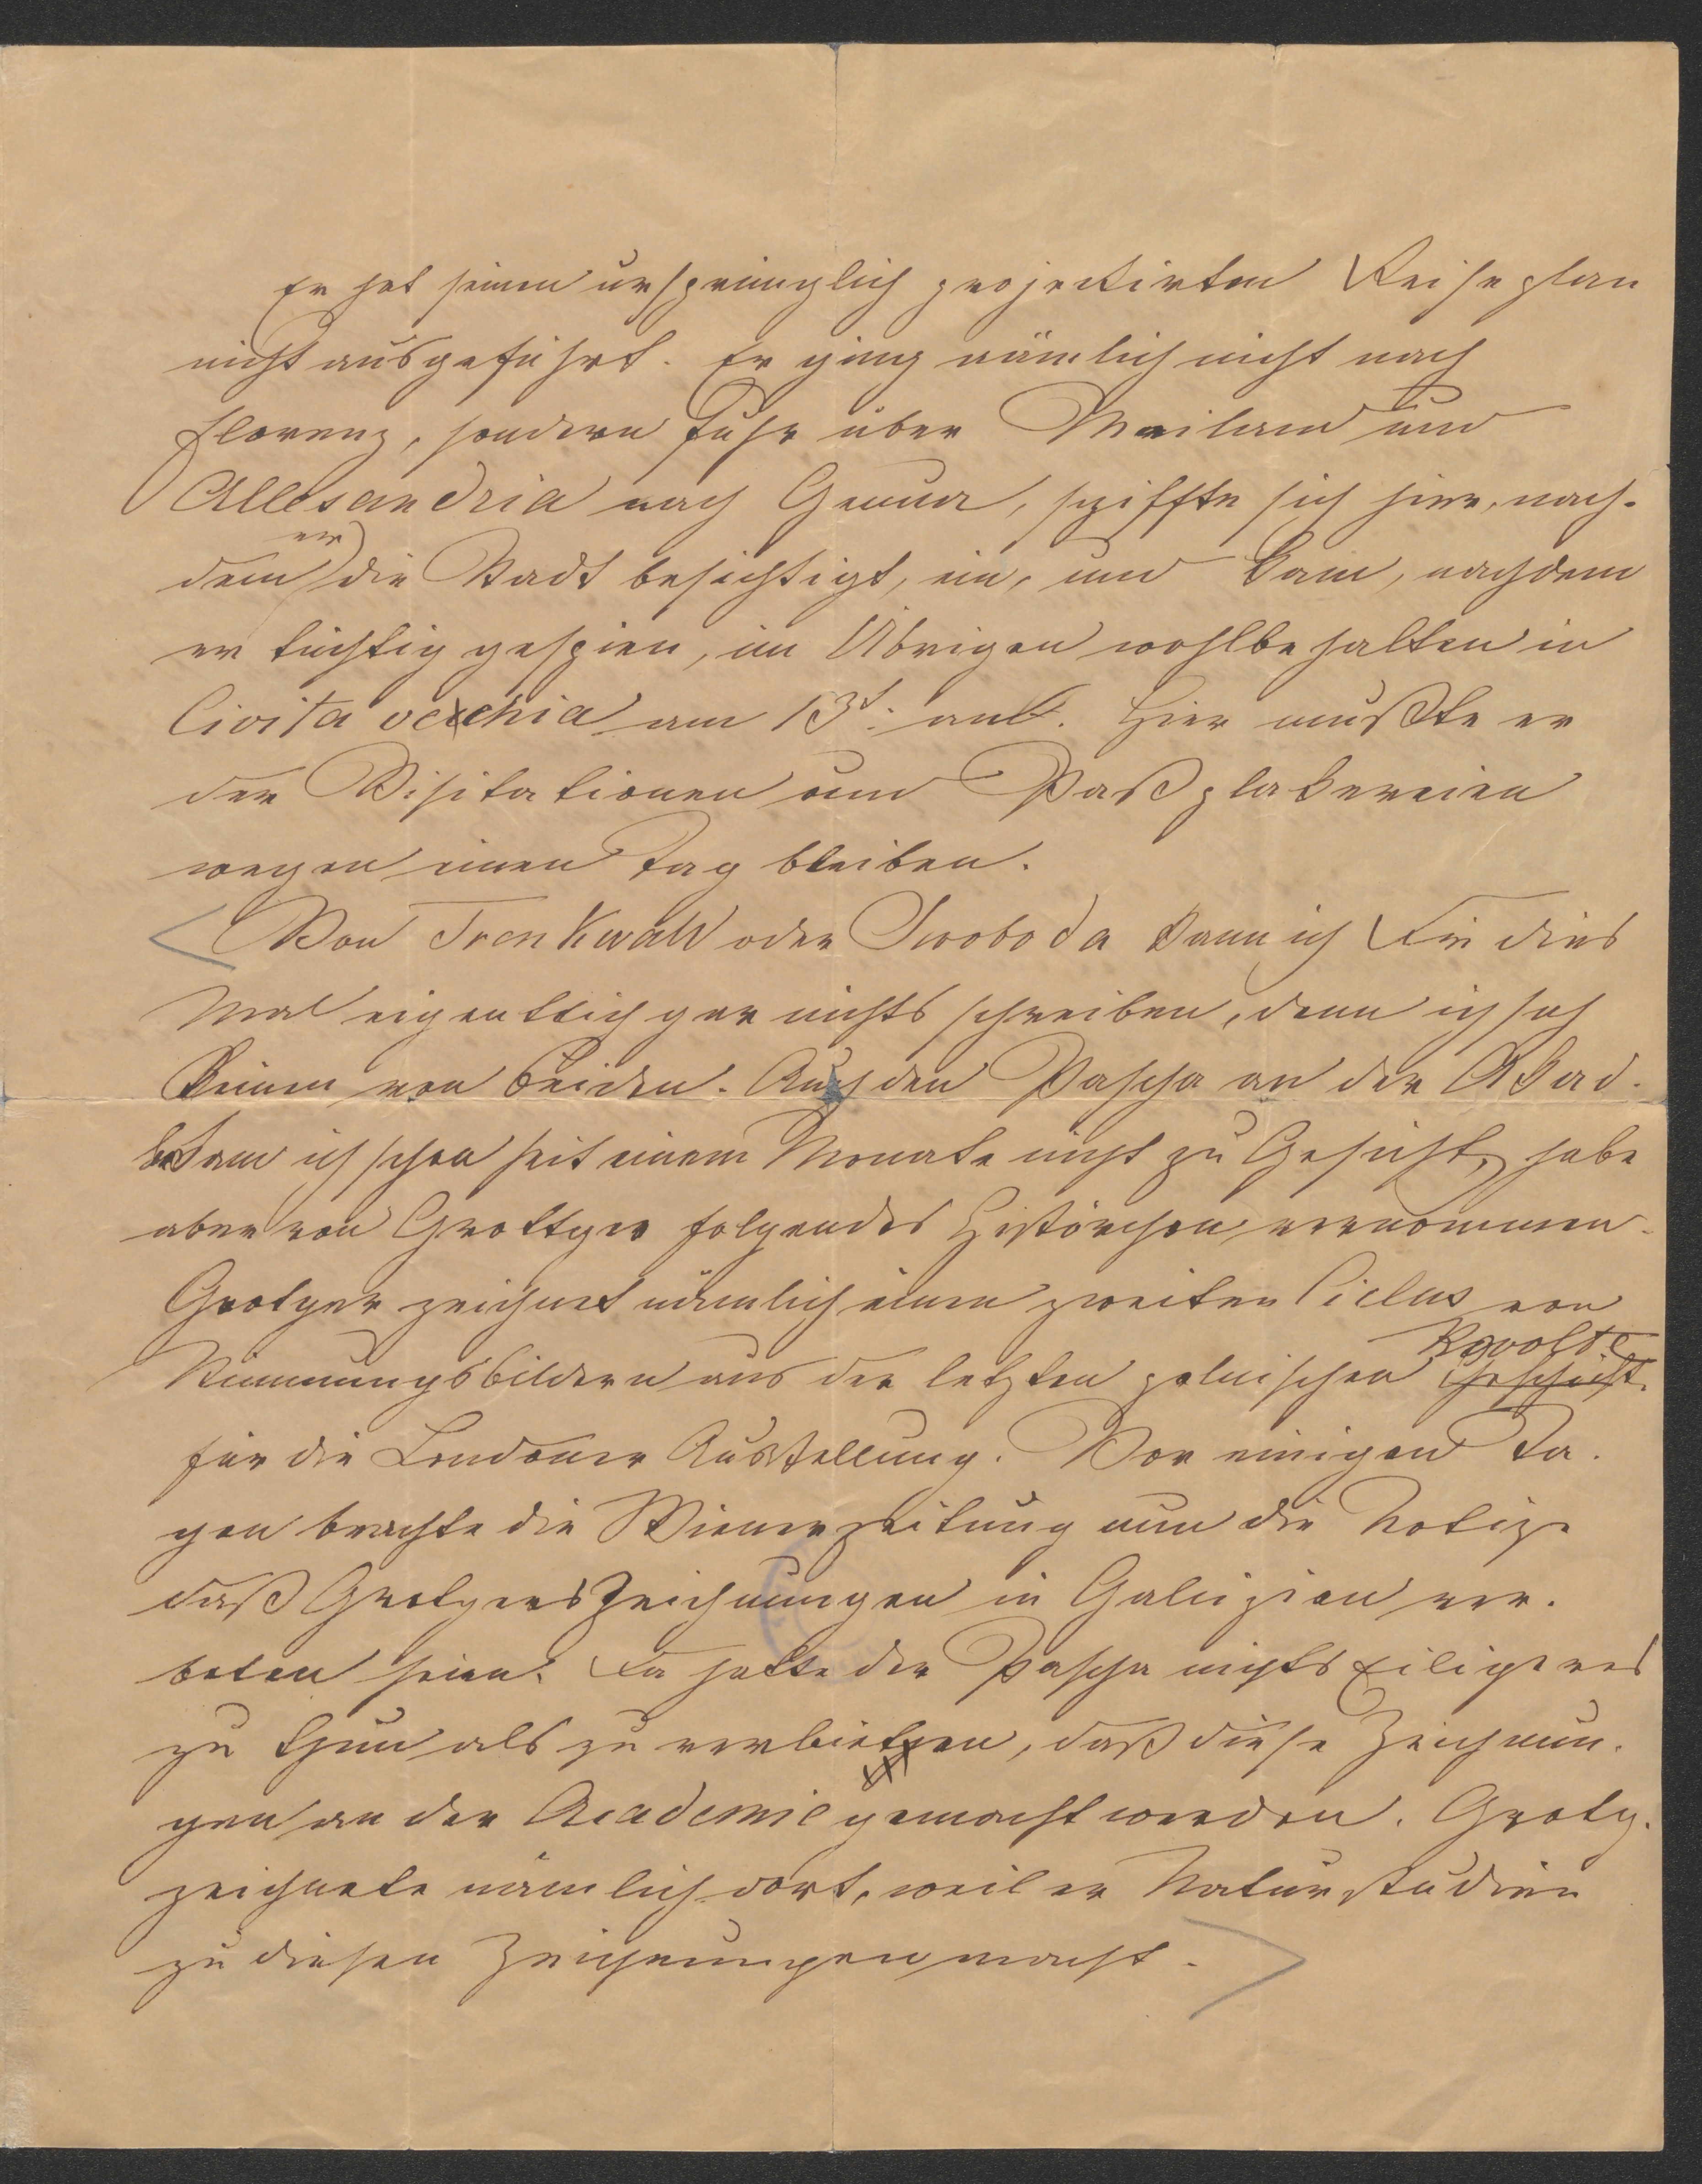 Er hat seinen ursprünglich projectirten Reiseplan
nicht ausgeführt. Er ging nämlich nicht nach
Florenz, sondern fuhr über Mailand und
Allesandria nach Genua, schiffte sich hier, nach-
dem er die Stadt besichtigt, ein, und kam, nachdem
er tüchtig gespien, im Übrigen wohlbehalten in
Civita vecchia am 13t: an. Hier mußte er
der Visitationen und Paßplakereien
wegen einen Tag bleiben.
Von Trenkwald oder Swoboda kann ich Dir dies
Mal eigentlich gar nichts schreiben, denn ich sah
Keinen von Beiden. Auch den Pascha an der Akad.
bekam ich schon seit einem Monate nicht zu Gesicht, habe
aber von Grottger folgendes Histörchen vernommen.
Grotger zeichnet nämlich einen zweiten Ciclus von
Stimmungsbildern aus der letzten polnischen Geschicht. Revolte
für die Londoner Ausstellung. Vor einigen Ta-
gen brachte die Wienerzeitung nun die Notize
daß Grotgers Zeichnungen in Galizien ver-
boten seien. Da hatte der Pascha nichts Eiligeres
zu thun als zu verbieten, daß diese Zeichnun-
gen an der Academie gemacht werden. Grotg.
zeichnete nämlich dort, weil er Naturstudien
zu diesen Zeichnungen macht.